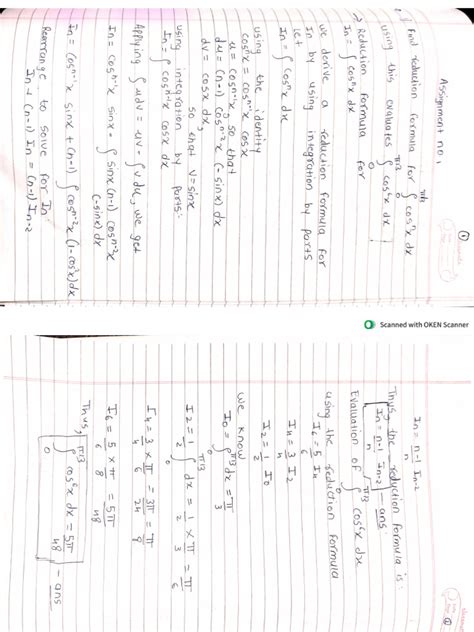 Assignment no. 1
Q.1 Find reduction formula for ∫ cosⁿx dx
using this evaluates ∫₀^π/3 cos⁶x dx
→ Reduction formula for
In = ∫ cosⁿx dx
we derive a reduction formula for
In by using integration by parts
let
In = ∫ cosⁿx dx
using the identity
cosⁿx = cosⁿ⁻¹x cosx
u = cosⁿ⁻¹x, so that
du = (n-1) cosⁿ⁻²x (-sinx) dx
dv = cosx dx,
so that v = sinx
using integration by parts:-
In = ∫ cosⁿ⁻¹x cosx dx
Applying ∫ udv = uv - ∫ vdu, we get
In = cosⁿ⁻¹x sinx - ∫ sinx (n-1) cosⁿ⁻²x
(-sinx) dx
In = cosⁿ⁻¹x sinx + (n-1) ∫ cosⁿ⁻²x (1-cos²x) dx
Rearrange to solve for In
In + (n-1) In = (n-1) In-2
Scanned with OKEN Scanner
In = n-1/n In-2
Thus, the reduction formula is:
In = n-1/n In-2 - ans
Evaluation of ∫₀^π/3 cos⁶x dx
using the reduction formula
I₆ = 5/6 I₄
I₄ = 3/4 I₂
I₂ = 1/2 I₀
we know
I₀ = ∫₀^π/3 dx = π/3
I₂ = 1/2 ∫₀^π/3 dx = 1/2 × π/3 = π/6
I₄ = 3/4 × π/6 = 3π/24 = π/8
I₆ = 5/6 × π/8 = 5π/48
Thus,
∫₀^π/3 cos⁶x dx = 5π/48 - ans